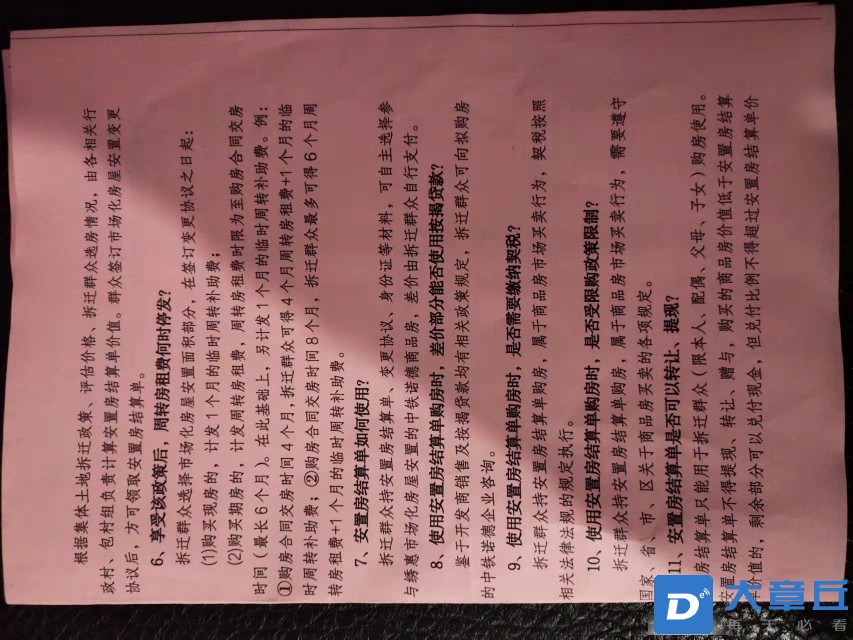 根据集体土地拆迁政策、评估价格、拆迁群众选房情况，由各相关行
政村、包村组负责计算安置房结算单价值。群众签订市场化房屋安置变更
协议后，方可领取安置房结算单。
6、享受该政策后，周转房租费何时停发？
拆迁群众选择市场化房屋安置面积部分，在签订变更协议之日起：
(1)购买现房的，计发1个月的临时周转补助费；
(2)购买期房的，计发周转房租费，周转房租费时限为至购房合同交房
时间（最长6个月）。在此基础上，另计发1个月的临时周转补助费。例：
①购房合同交房时间4个月，拆迁群众可得4个月周转房租费+1个月的临
时周转补助费；②购房合同交房时间8个月，拆迁群众最多可得6个月周
转房租费+1个月的临时周转补助费。
7、安置房结算单如何使用？
拆迁群众持安置房结算单、变更协议、身份证等材料，可自主选择参
与绣惠市场化房屋安置的中铁诺德商品房，差价由拆迁群众自行支付。
8、使用安置房结算单购房时，差价部分能否使用按揭贷款？
鉴于开发商销售及按揭贷款均有相关政策规定，拆迁群众可向拟购房
的中铁诺德企业咨询。
9、使用安置房结算单购房时，是否需要缴纳契税？
拆迁群众持安置房结算单购房，属于商品房市场买卖行为，契税按照
相关法律法规的规定执行。
10、使用安置房结算单购房时，是否受限购政策限制？
拆迁群众持安置房结算单购房，属于商品房市场买卖行为，需要遵守
国家、省、市、区关于商品房买卖的各项规定。
11、安置房结算单是否可以转让、提现？
房结算单只能用于拆迁群众（限本人、配偶、父母、子女）购房使用。
安置房结算单不得提现、转让、赠与，购买的商品房价值低于安置房结算
单价值的，剩余部分可以兑付现金，但兑付比例不得超过安置房结算单价
大章丘
每天必看